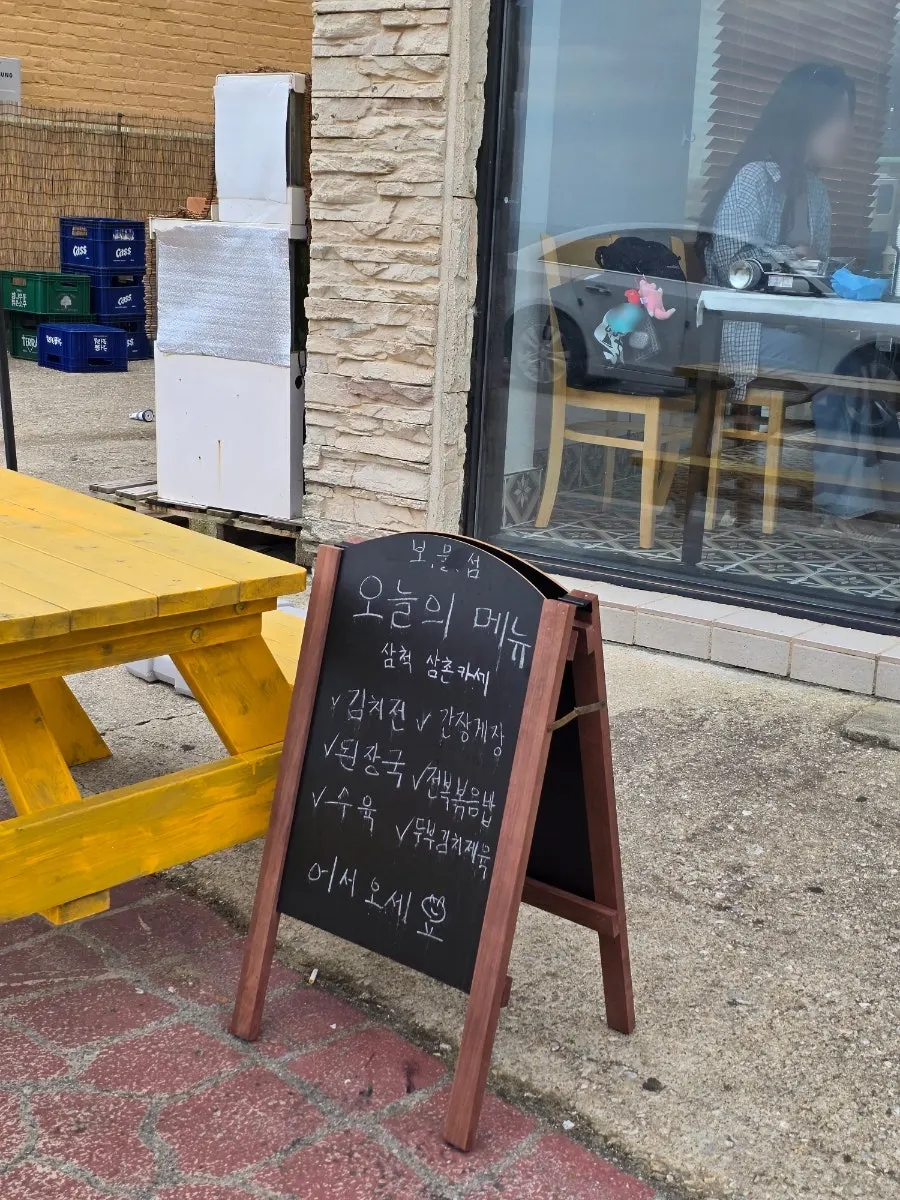 보.물.섬
오늘의 메뉴
삼척 삼촌카세
✓김치전 ✓간장게장
✓된장국 ✓전복볶음밥
✓수육 ✓두부김치제육
어서 오세요
Cass
Cass
Cass
TERRA